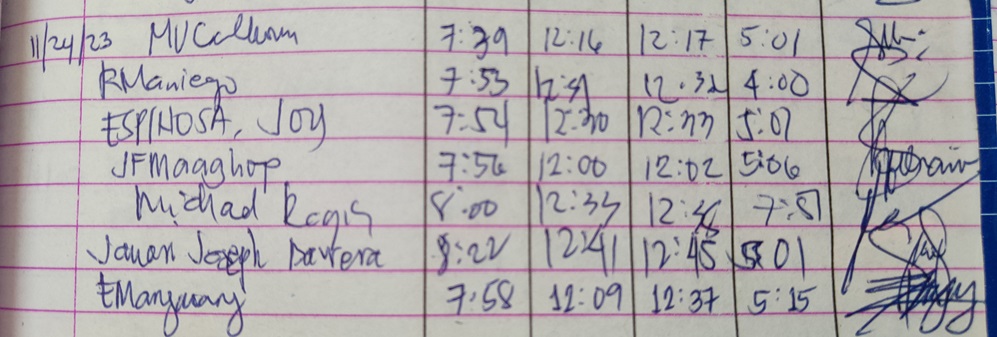 11/24/23 MVCalhoun 7:39 12:16 12:17 5:01
RManiego 7:53 12:31 12:32 4:00
ESPINOSA, JOY 7:54 12:30 12:33 5:01
7:56 12:00 12:02 5:06
Michael Regis 8:00 12:33 12:36 7:51
Joseph 8:22 12:41 12:45 5:01
7:58 12:09 12:37 5:15